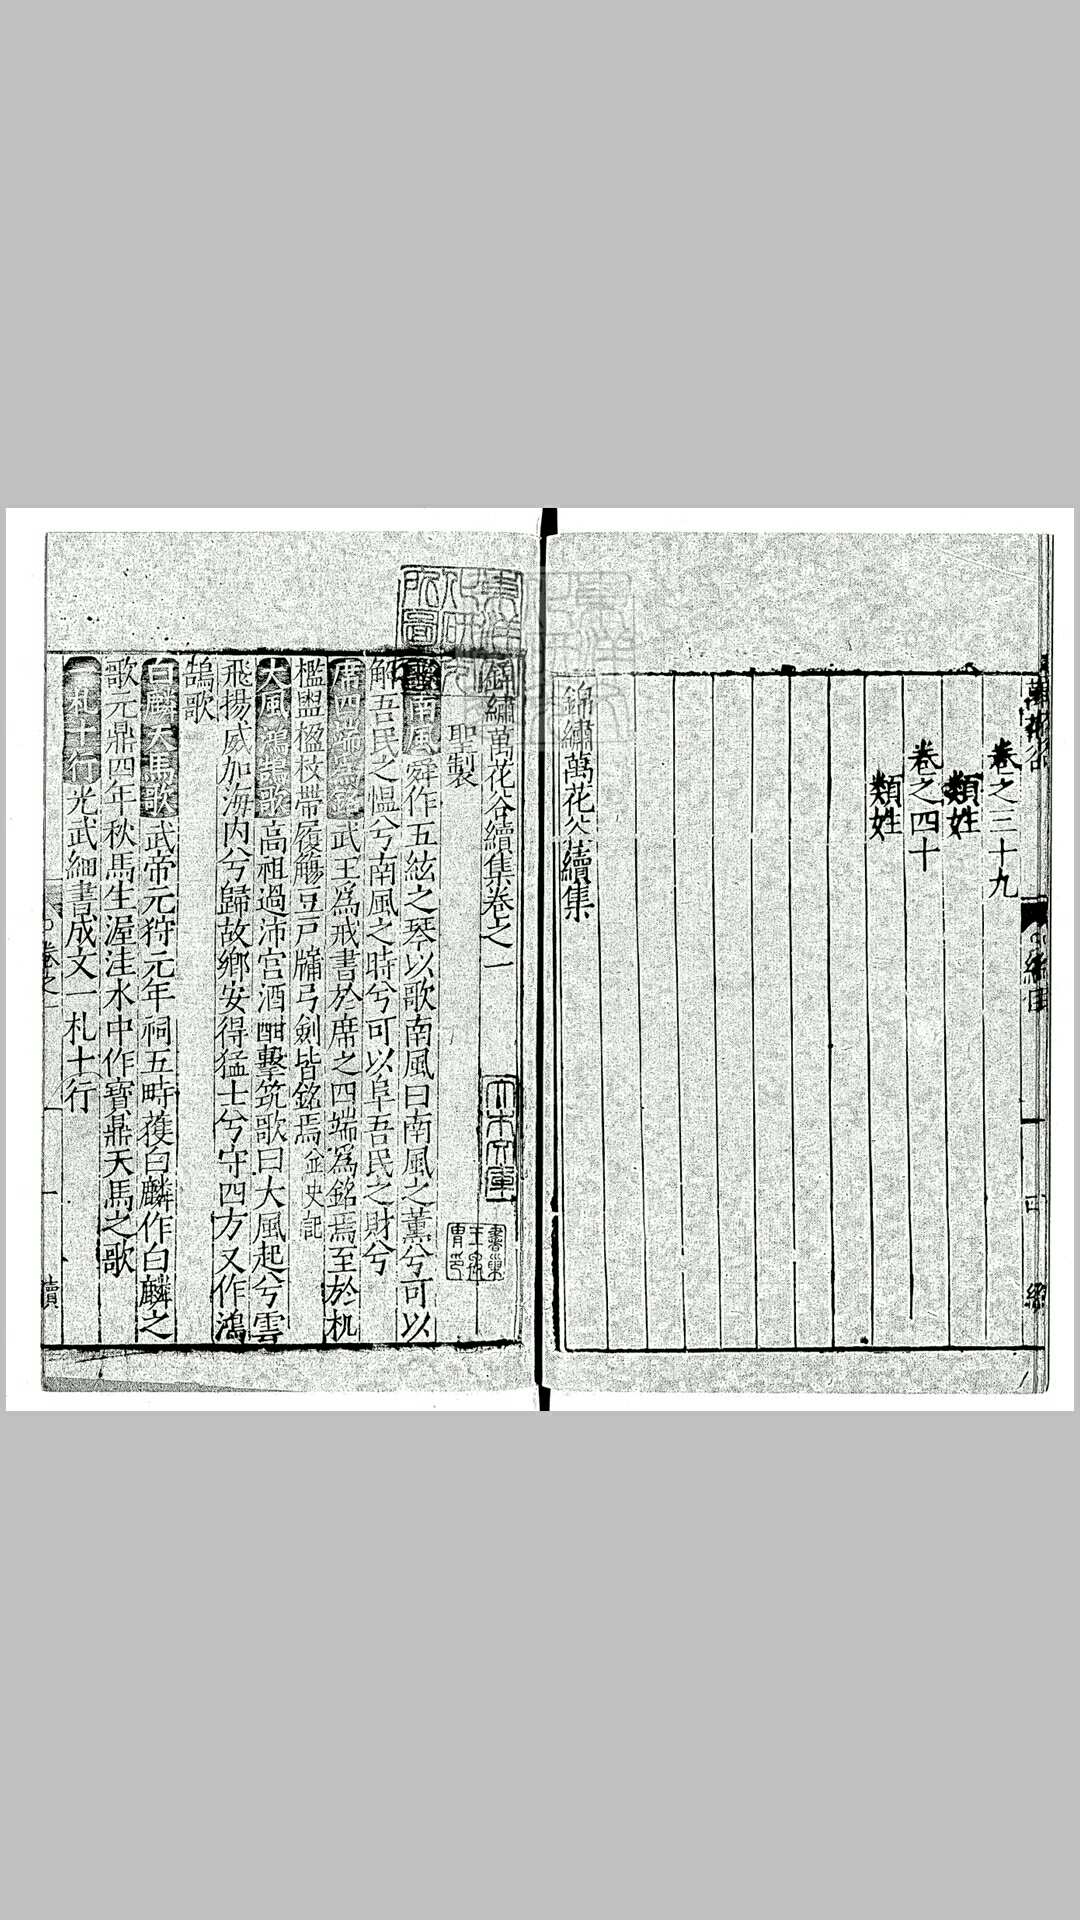 卷之三十九
類姓
卷之四十
類姓
錦繡萬花谷續集
錦繡萬花谷續集卷之一
聖製
歌南風舜作五絃之琴以歌南風曰南風之薰兮可以
解吾民之愠兮南風之時兮可以阜吾民之財兮
席四端爲銘武王爲戒書於席之四端爲銘焉至於机
檻盟楹杖帶履觴豆戸牖弓劍皆銘焉
史記
大風鴻鵠歌高祖過沛宮酒酣擊筑歌曰大風起兮雲
飛揚威加海内兮歸故鄉安得猛士兮守四方又作鴻
鵠歌
白麟天馬歌武帝元狩元年祠五畤獲白麟作白麟之
歌元鼎四年秋馬生渥洼水中作寶鼎天馬之歌
一札十行光武細書成文一札十行
卷之一
續